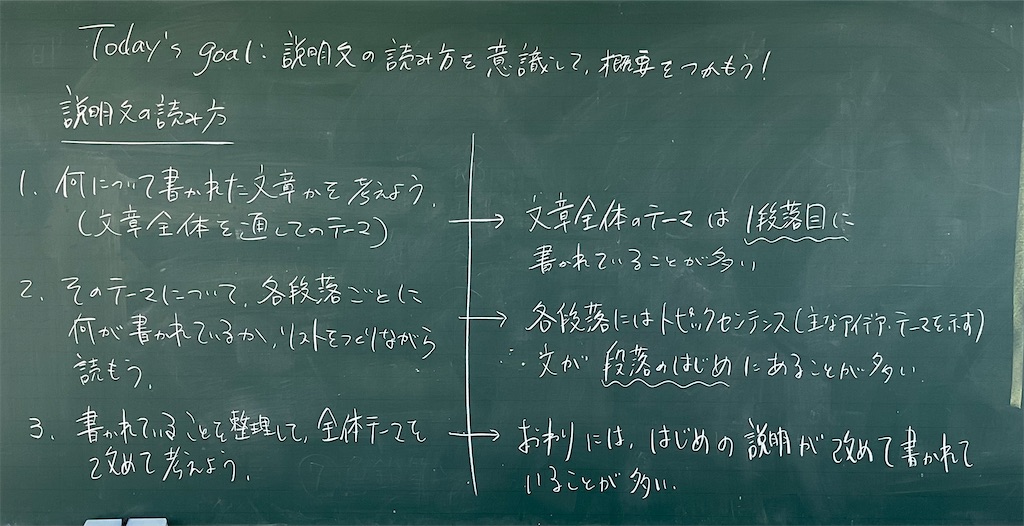 Today's goal: 説明文の読み方を意識して、概要をつかもう!
説明文の読み方
1. 何について書かれた文章かを考えよう。
(文章全体を通してのテーマ)
→ 文章全体のテーマは1段落目に
書かれていることが多い
2. そのテーマについて、各段落ごとに
何が書かれているか、リストをつくりながら
読もう。
→ 各段落にはトピックセンテンス(主なアイデア・テーマを示す)
文が段落のはじめにあることが多い
3. 書かれていることを整理して、全体テーマを
改めて考えよう。
→ おわりには、はじめの説明が改めて書かれて
いることが多い.